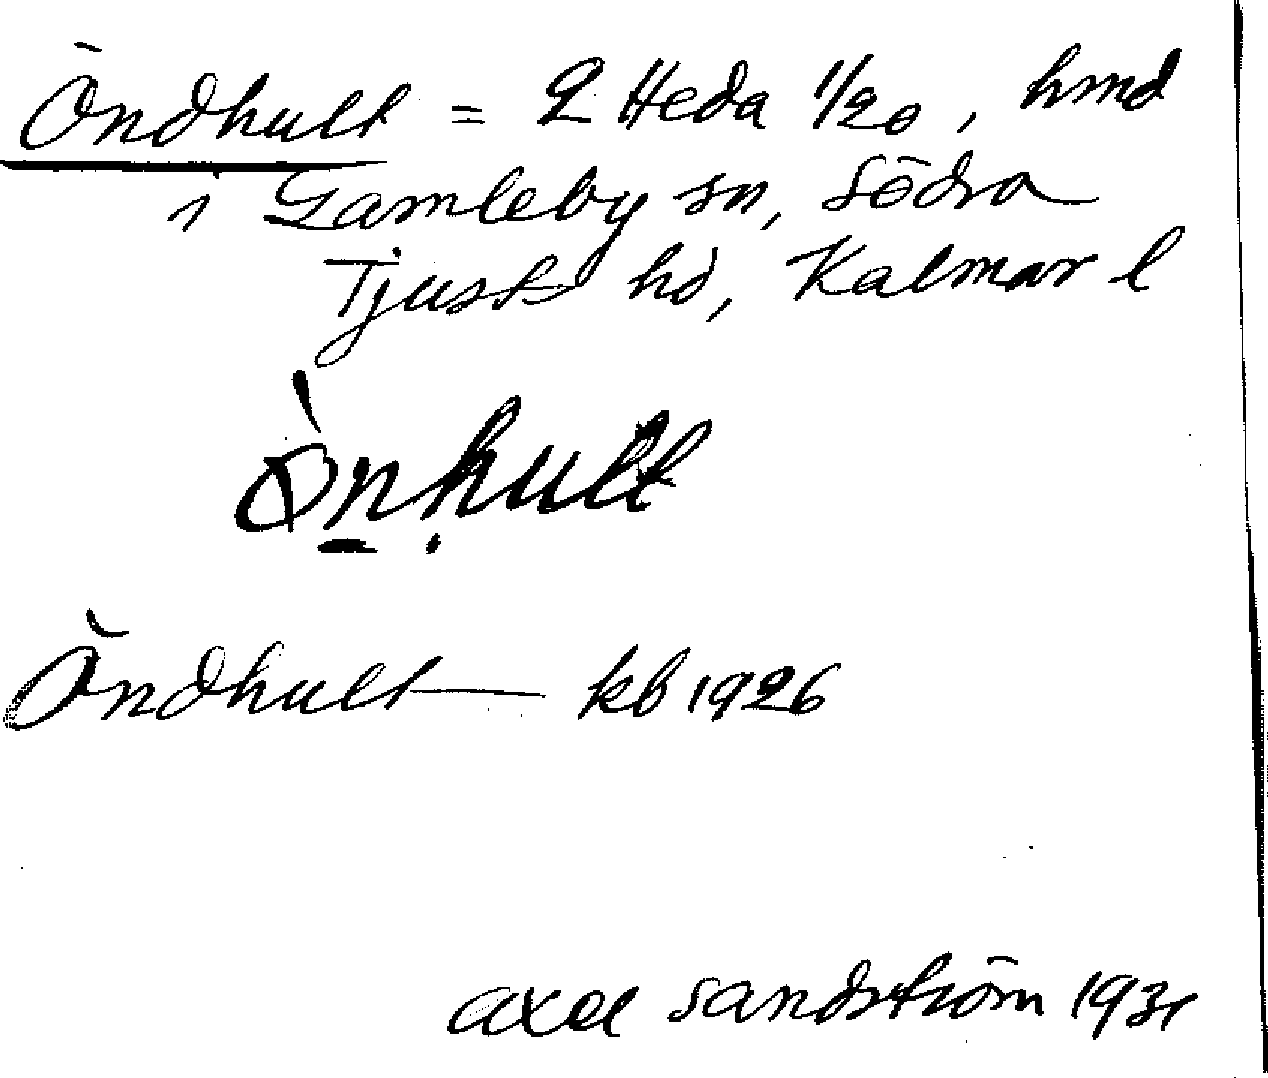 Öndhult = 2 Heda 1/20, hmd
i Gamleby sn, Södra
Tjust hd, Kalmar l
Öndhult — kb 1926
Axel Sandström 1931